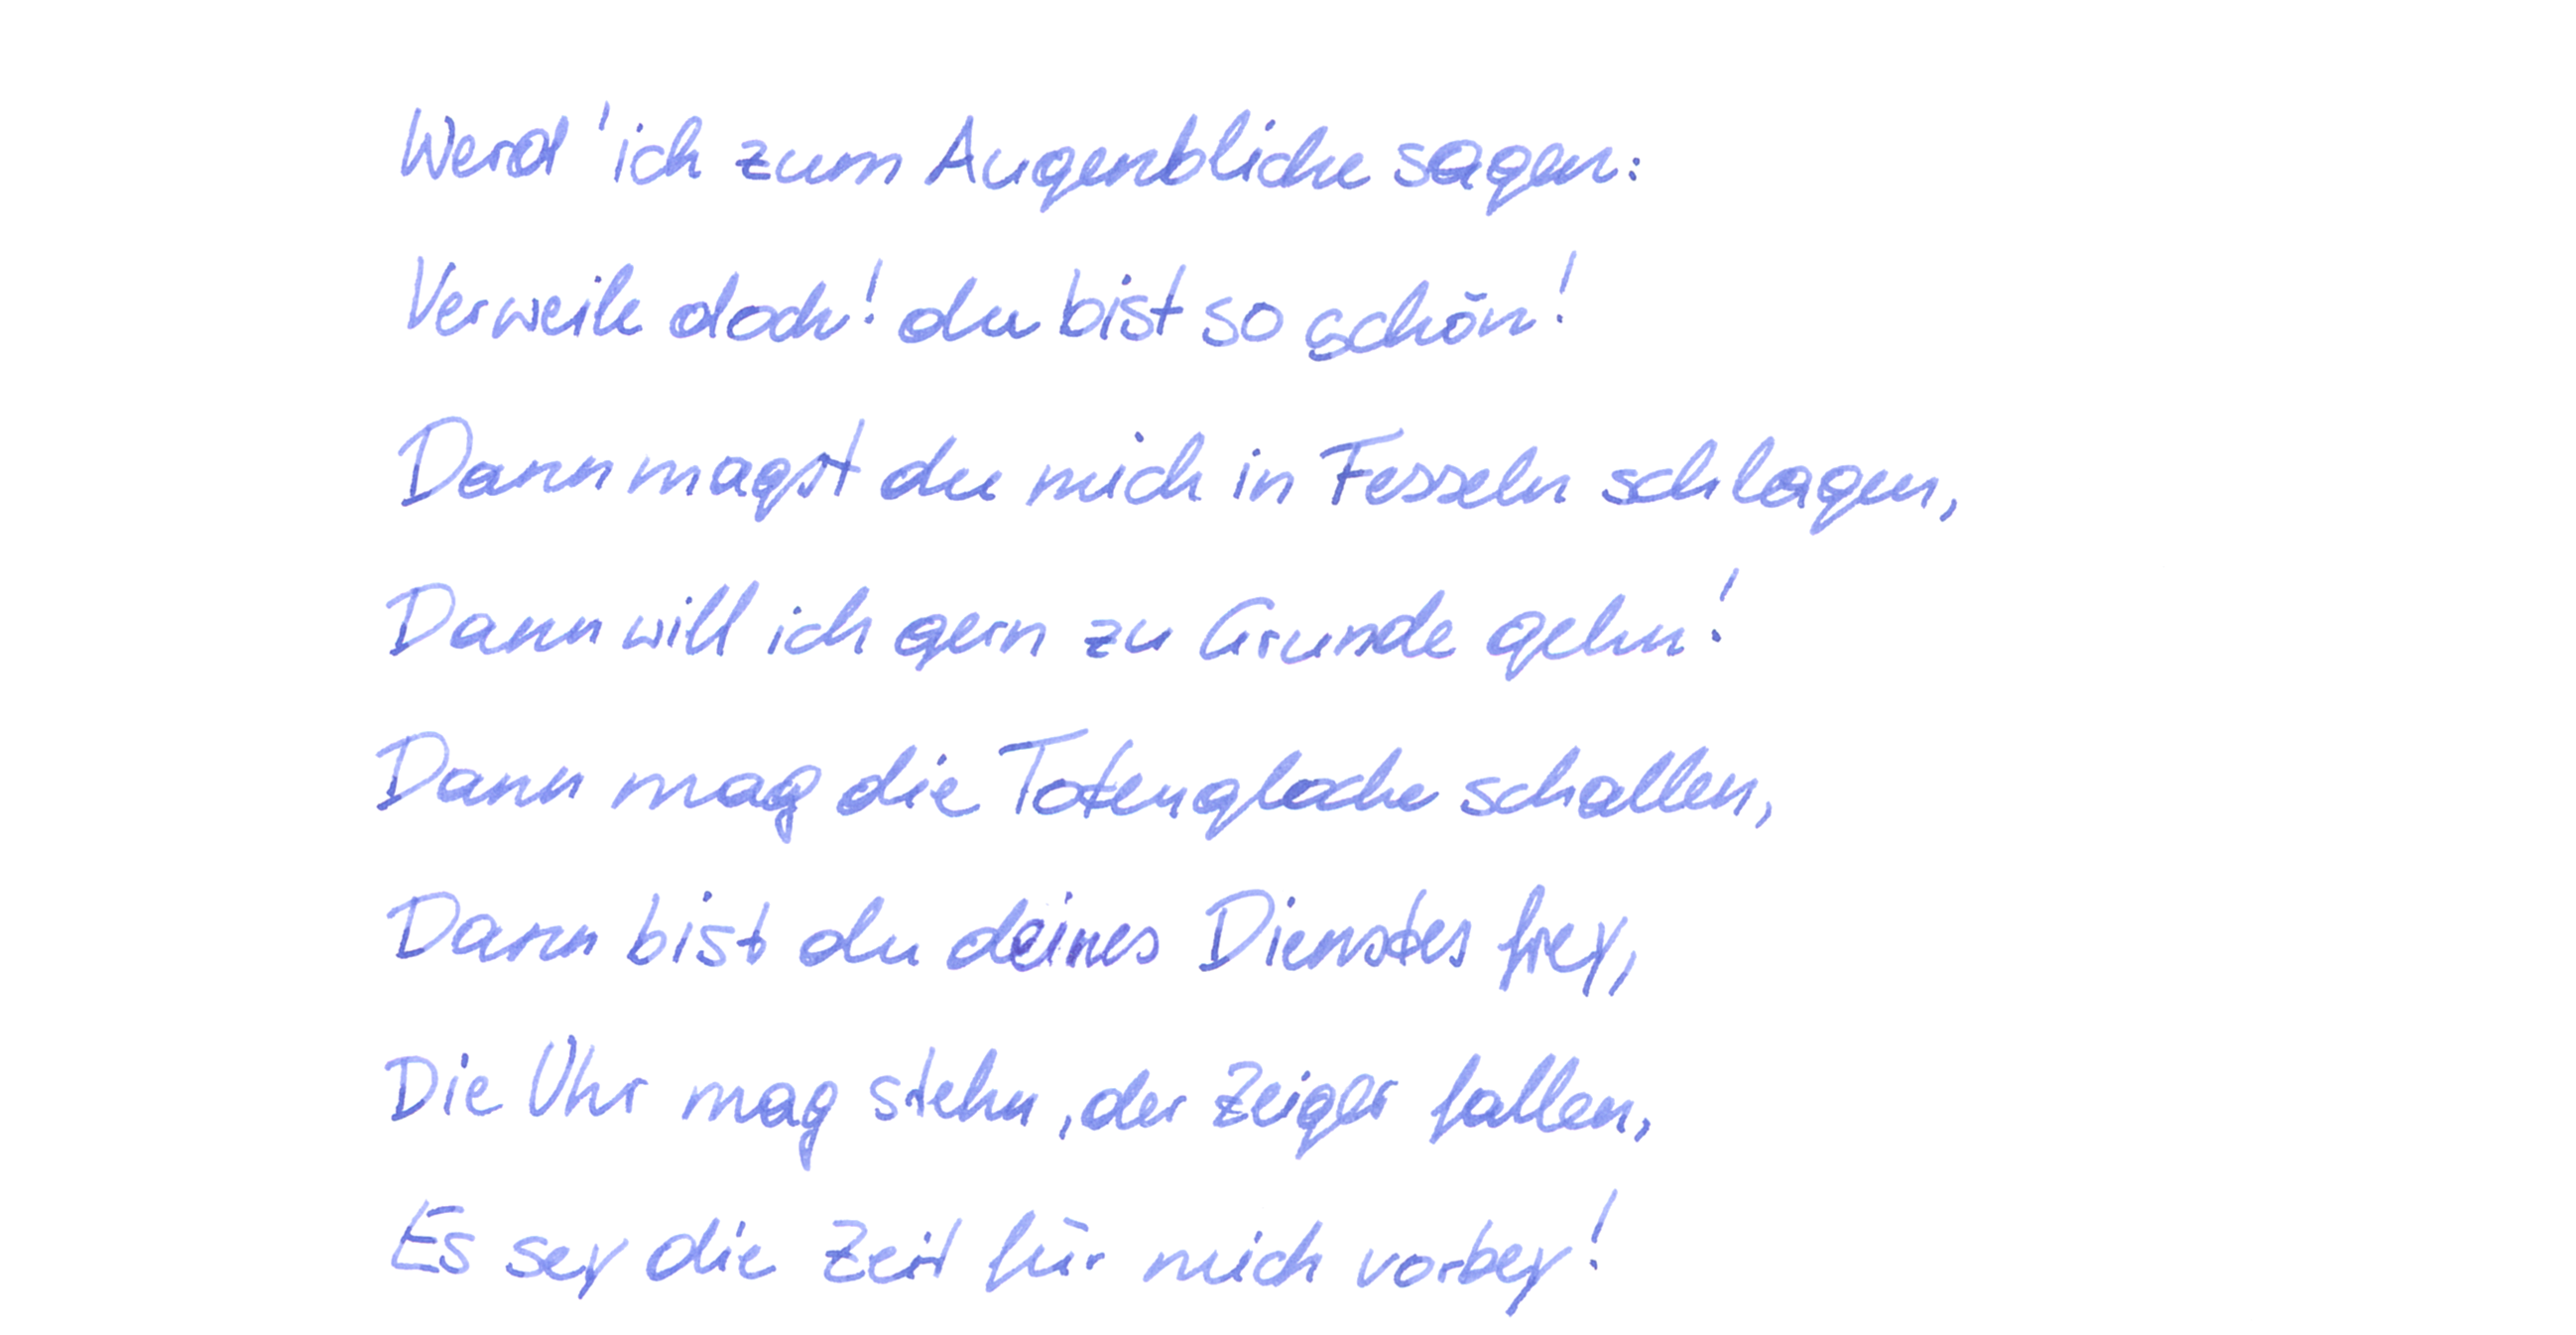 Werd' ich zum Augenblicke sagen:
Verweile doch! du bist so schön!
Dann magst du mich in Fesseln schlagen,
Dann will ich gern zu Grunde gehn!
Dann mag die Totenglocke schallen,
Dann bist du deines Dienstes frey,
Die Uhr mag stehn, der Zeiger fallen,
Es sey die Zeit für mich vorbey!